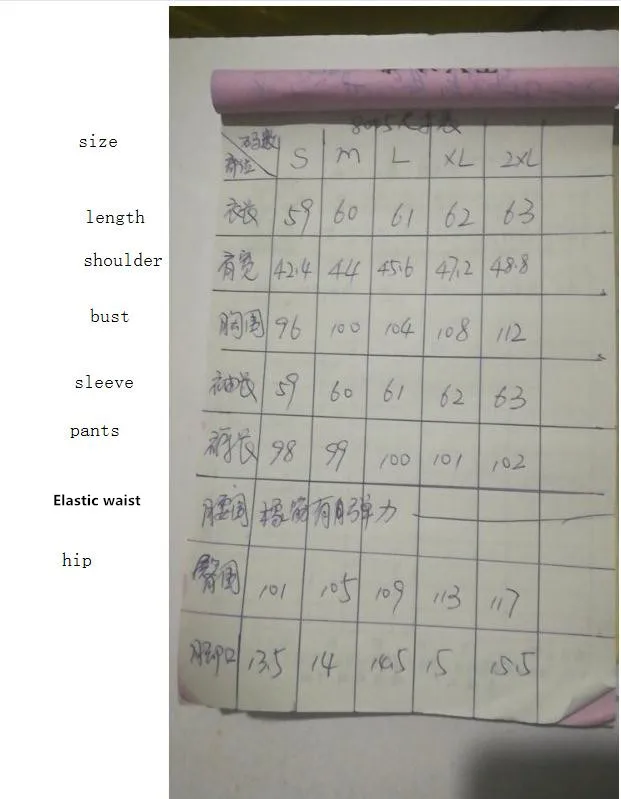 码数
size 部位 S M L XL 2XL
length 衣长 59 60 61 62 63
shoulder 肩宽 42.4 44 45.6 47.2 48.8
bust 胸围 96 100 104 108 112
sleeve 袖长 59 60 61 62 63
pants 裤长 98 99 100 101 102
Elastic waist 腰围 橡筋有弹力
hip 臀围 101 105 109 113 117
脚口 13.5 14 14.5 15 15.5